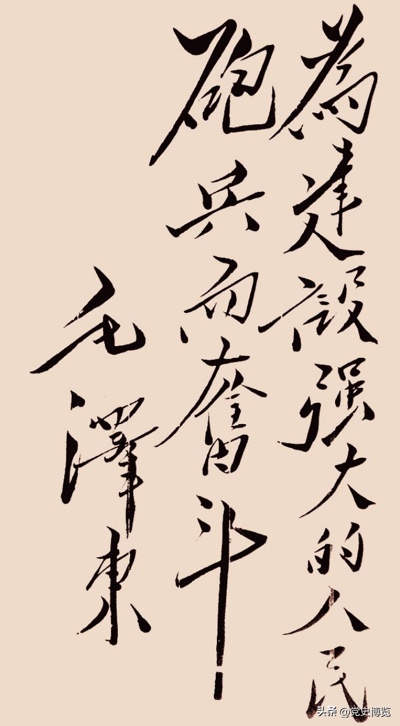 為建設强大的人民
砲兵而奮斗！
毛澤東
头条 @党史博览